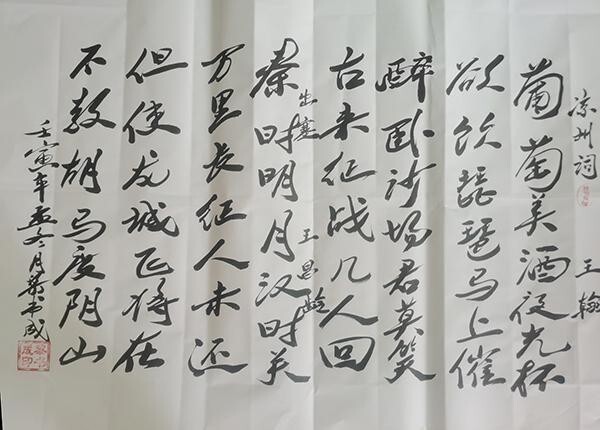 凉州词 王翰
葡萄美酒夜光杯
欲饮琵琶马上催
醉卧沙场君莫笑
古来征战几人回
出塞 王昌龄
秦时明月汉时关
万里长征人未还
但使龙城飞将在
不教胡马度阴山
壬寅年孟冬月平成